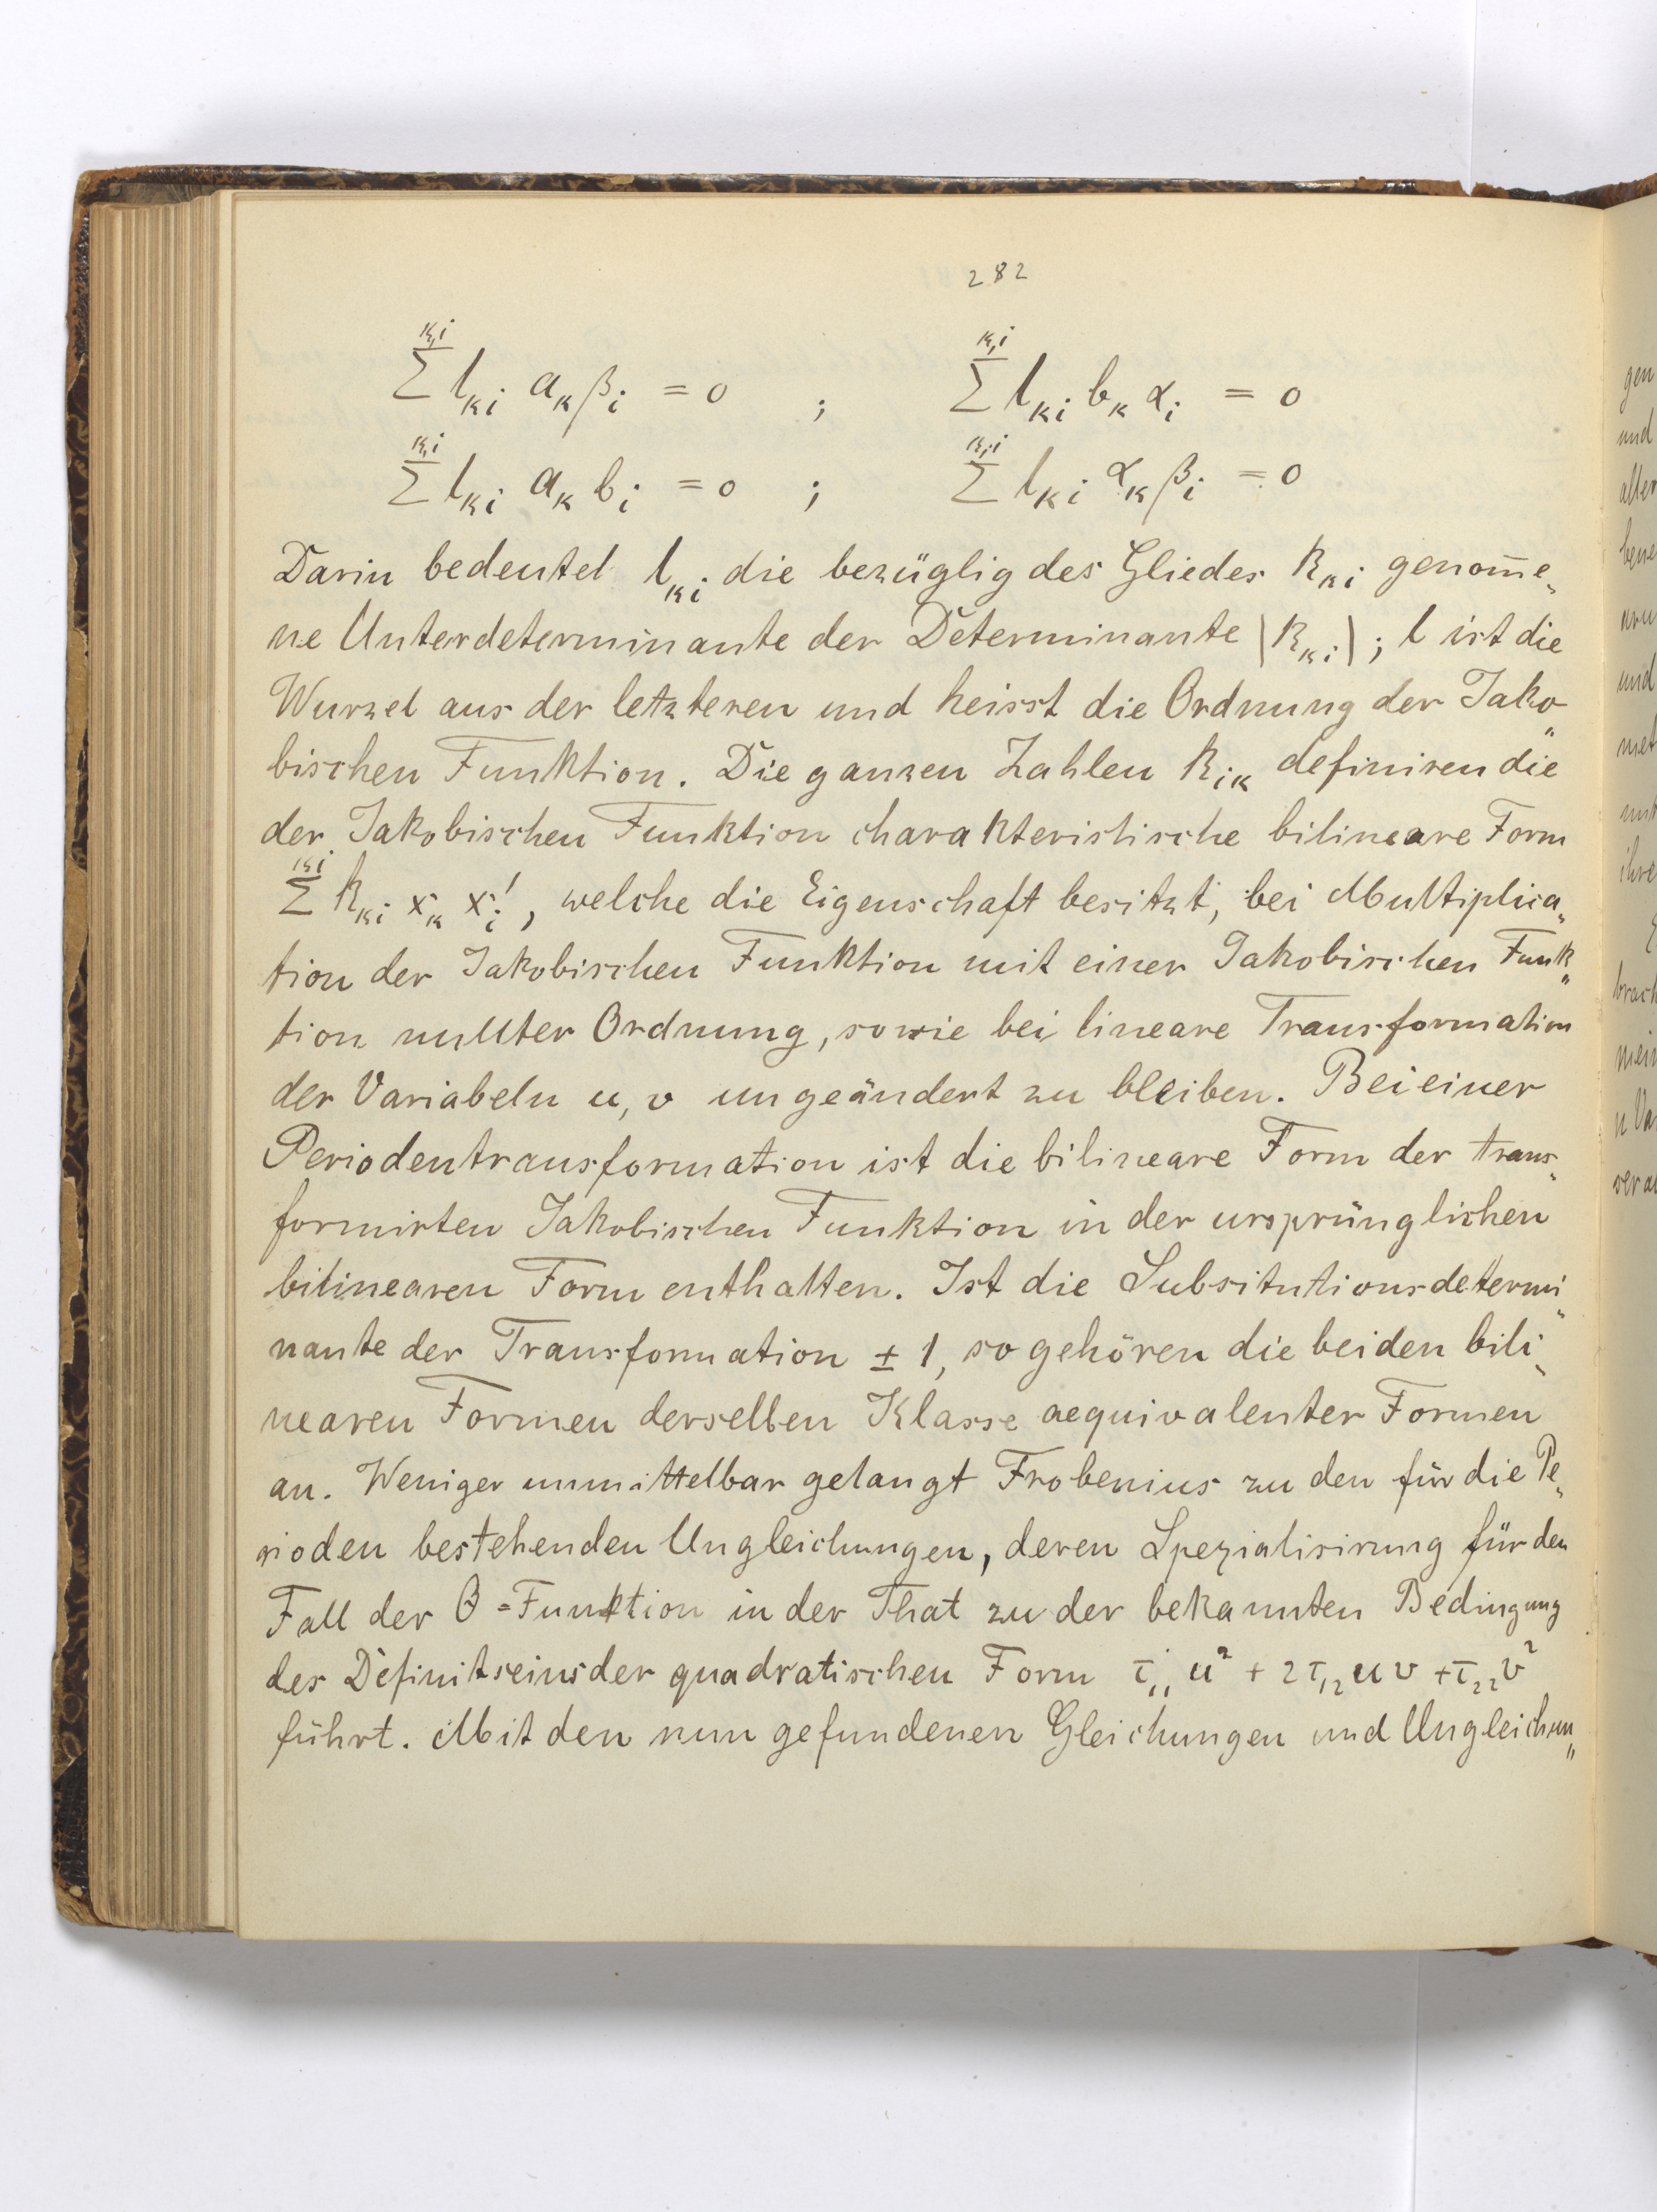 282
Σ^{κ,i} l_{κi} a_κ β_i = 0 ; Σ^{κ,i} l_{κi} b_κ α_i = 0
Σ^{κ,i} l_{κi} a_κ b_i = 0 ; Σ^{κ,i} l_{κi} α_κ β_i = 0
Darin bedeutet l_{κi} die bezüglig des Gliedes k_{κi} genom̅e„
ne Unterdeterminante der Determinante |k_{κi}|; l ist die
Wurzel aus der letzteren und heisst die Ordnung der Jako„
bischen Funktion. Die ganzen Zahlen k_{iκ} definiren die
der Jakobischen Funktion charakteristische bilineare Form
Σ^{κi} k_{κi} x_κ x_i', welche die Eigenschaft besitzt, bei Multiplica„
tion der Jakobischen Funktion mit einer Jakobischen Funk„
tion nullter Ordnung, sowie bei lineare Transformation
der Variabeln u, v ungeändert zu bleiben. Bei einer
Periodentransformation ist die bilineare Form der trans„
formirten Jakobischen Funktion in der ursprünglichen
bilinearen Form enthalten. Ist die Subsitutionsdetermi„
nante der Transformation ± 1, so gehören die beiden bili„
nearen Formen derselben Klasse aequivalenter Formen
an. Weniger unmittelbar gelangt Frobenius zu den für die Pe„
rioden bestehenden Ungleichungen, deren Spezialisirung für den
Fall der θ=Funktion in der That zu der bekannten Bedingung
des Definitseins der quadratischen Form τ_{11} u² + 2τ_{12} u v + τ_{22} v²
führt. Mit den nun gefundenen Gleichungen und Ungleichun„